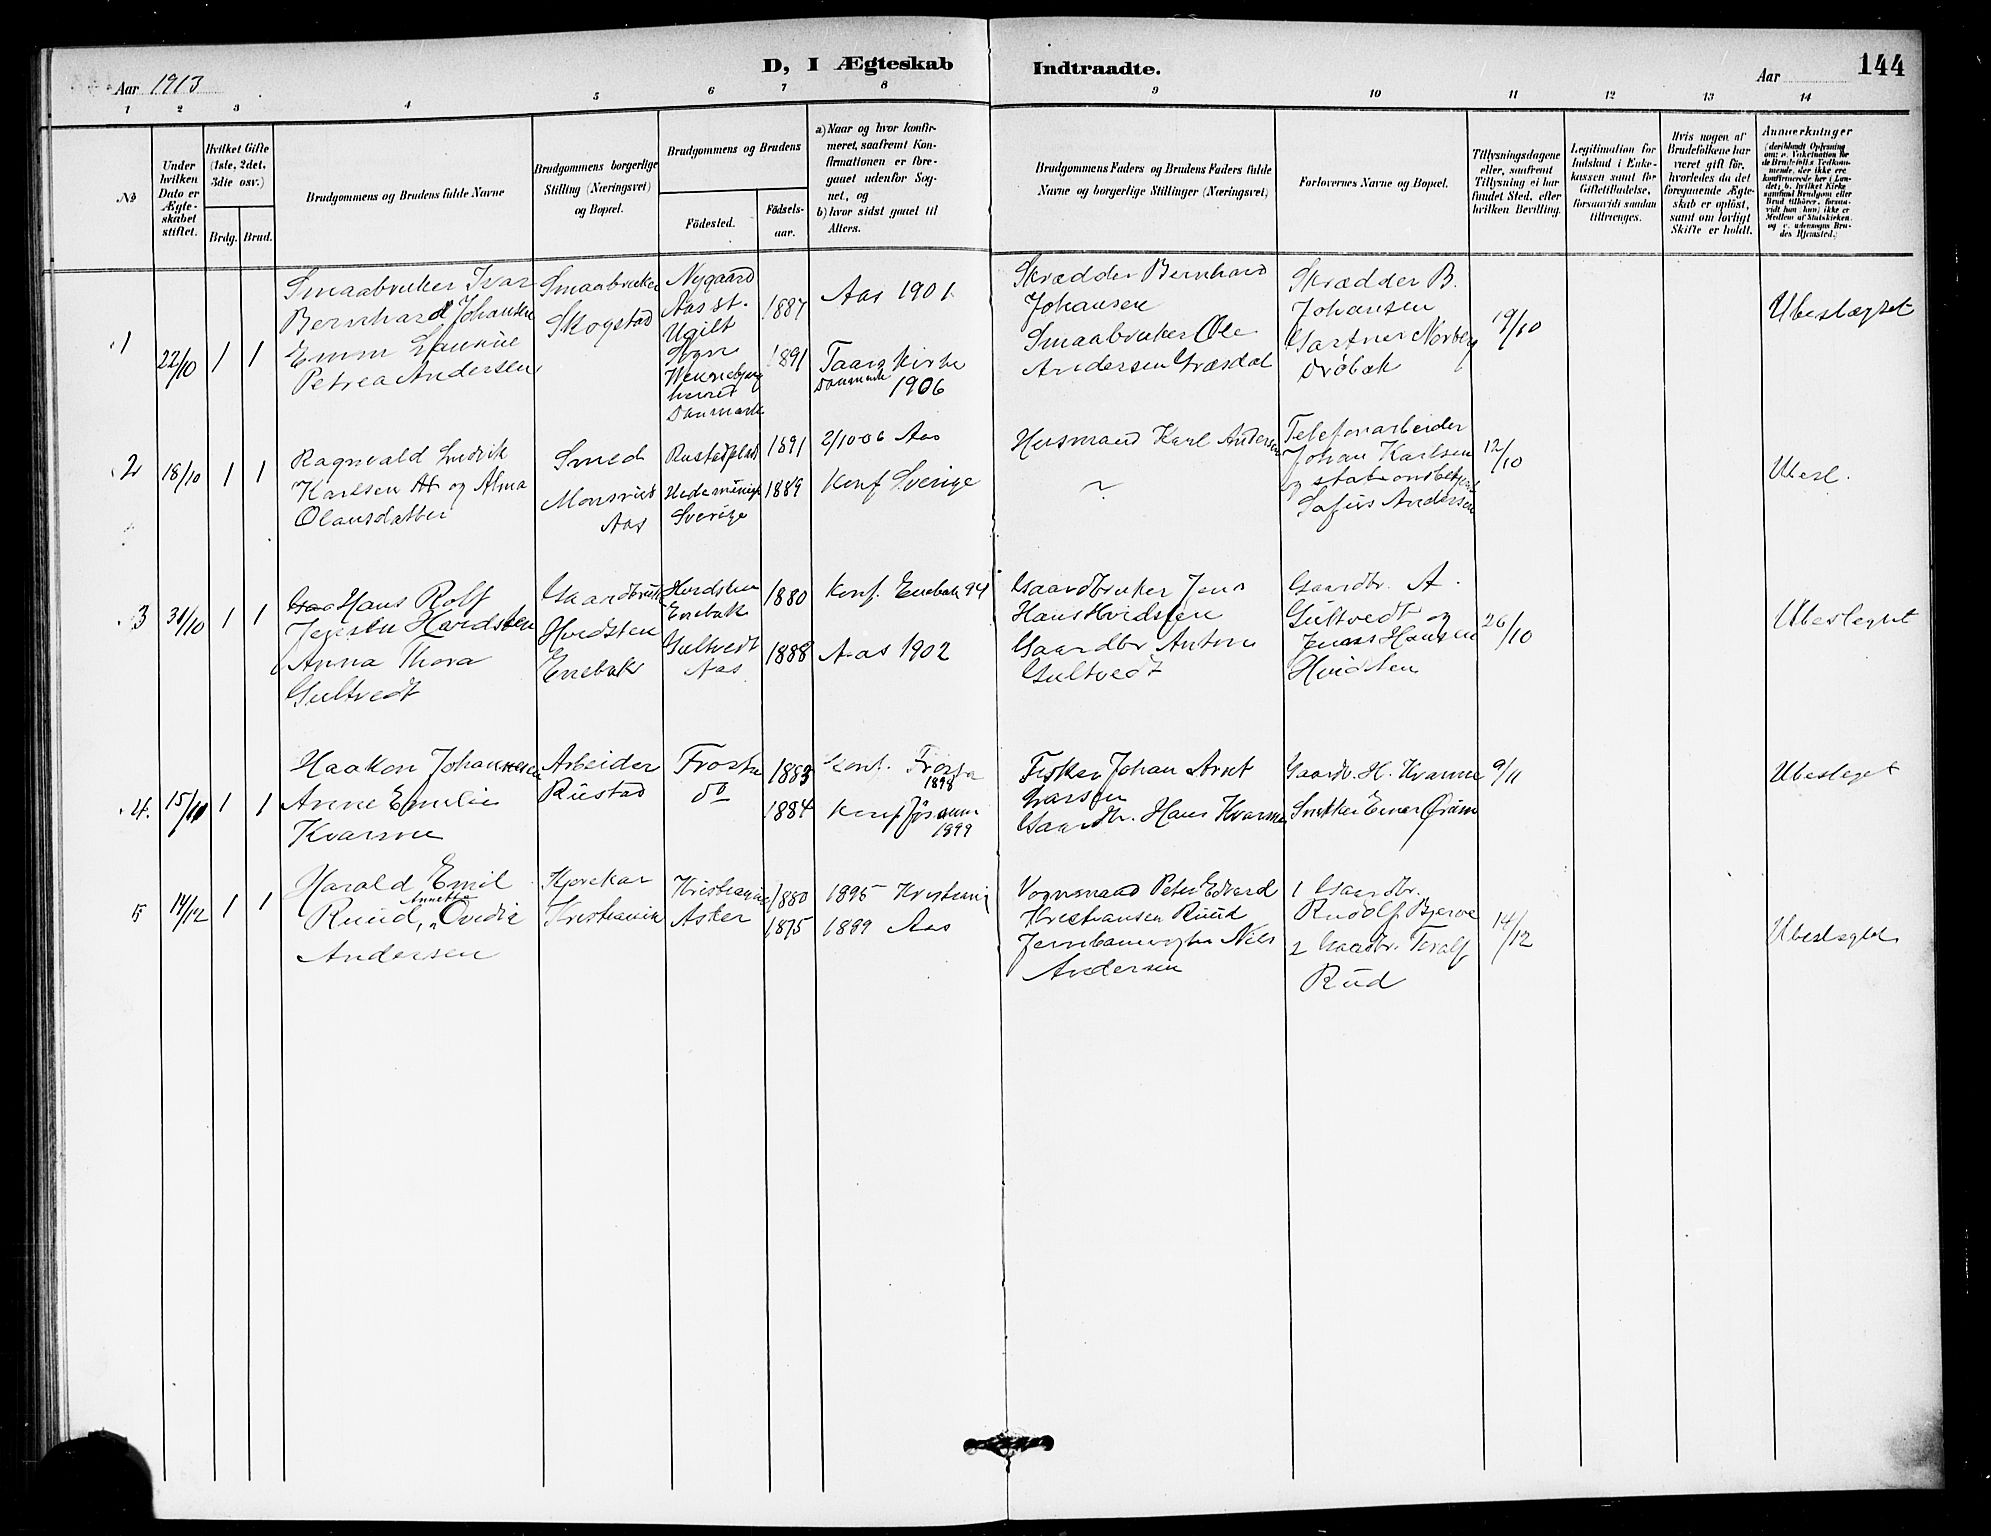 Aar 1913
D, I Ægteskab Indtraadte.
Aar
144
1 2 3 4 5 6 7 8 9 10 11 12 13 14
No
Under hvilken Dato er Ægteskabet stiftet.
Hvilket Gifte (1ste, 2det, 3die osv.)
Brdg. Brud.
Brudgommens og Brudens fulde Navne
Brudgommens borgerlige Stilling (Næringsvei) og Bopæl.
Brudgommens og Brudens
Födested.
Födsels-aar.
a) Naar og hvor konfirmeret, saafremt Konfirmationen er foregaaet udenfor Sognet, og
b) hvor sidst gaaet til Alters.
Brudgommens Faders og Brudens Faders fulde Navne og borgerlige Stillinger (Næringsvei)
Forlovernes Navne og Bopæl.
Tillysningsdagene eller, saafremt Tillysning ei har fundet Sted, efter hvilken Bevilling.
Legitimation for Indskud i Enkekassen samt for Giftetilladelse, forsaavidt saadan tiltrænges.
Hvis nogen af Brudefolkene har været gift för, hvorledes da det foregaaende Ægteskab er oplöst, samt om lovligt Skifte er holdt.
Anmerkninger (deriblandt Oplysning om: a. Vakcination for de Brudefolks Vedkommende, der ikke ere konfirmerede her i Landet; b. hvilket Kirkesamfund Brudgom eller Brud tilhörer, forsaavidt han (hun) ikke er Medlem af Statskirken, og c. udensogns Brudes Hjemsted.)
1 22/10 1 1
Smaabruker Ivar
Bernhard Johansen
Emm Laurine
Petrea Andersen
Smaabruker
Skogstad
Nygaard
Aas st.
Ugilt
Sogn
Danmark
1887
1891
Aas 1901
Taars Kirke
Danmark 1906
Skrædder Bernhard
Johansen
Smaabruker Ole
Andersen Græsdal
Skrædder B.
Johansen
Gartner Norberg
Drøbak
19/10
Ubeslægtet
2 18/10 1 1
Ragnvald Ludvik
Karlsen At og Alma
Olausdatter
Smed
Monsrud
Aas
Rustadplads
Hedemünge
Sverige
1891
1889
2/10-06 Aas
Konf Sverige
Husmand Karl Andersen
~
Telefonarbeider
Johan Karlsen
og stationsbetjent
Sofus Andersen
12/10
Ubesl.
3 31/10 1 1
Hans Rolf
Jensen Hvidsten
Anna Thora
Gultvedt
Gaardbruk
Hvidsten
Enebak
Hvidsten
Enebakk
Gultvedt
Aas
1880
1888
Konf. Enebak 94
Aas 1902
Gaardbruker Jens
Hans Hvidsten
Gaardbr Anton
Gultvedt
Gaardbr. A.
Gultvedt og
Hansen
Hvidsten
26/10
Ubeslegtet
4. 15/11 1 1
Haakon Johannesen
Anne Emelie
Kvarme
Arbeider
Rustad
Frosta
do
1883
1884
Konf. Frosta
1898
Konf
1899
Fisker Johan Arnt
Larsen
Gaardbr. Hans Kvarme
Gaardbr. H. Kvarme
Snekker Einar Øram
9/11
Ubesleget
5 14/12 1 1
Harald Emil
Annette
Ruud, Ovidia
Andersen
Kjørekar
Kristiania
Kristiania
Asker
1880
1875
1895 Kristiania
1889 Aas
Vognmand Peter Edvard
Kristiansen Ruud
Jernbanevogter Nils
Andersen
1 Gaardbr.
Rudolf Bjerve
2 Gaardbr. Toralf
Rud
14/12
Ubeslegtet